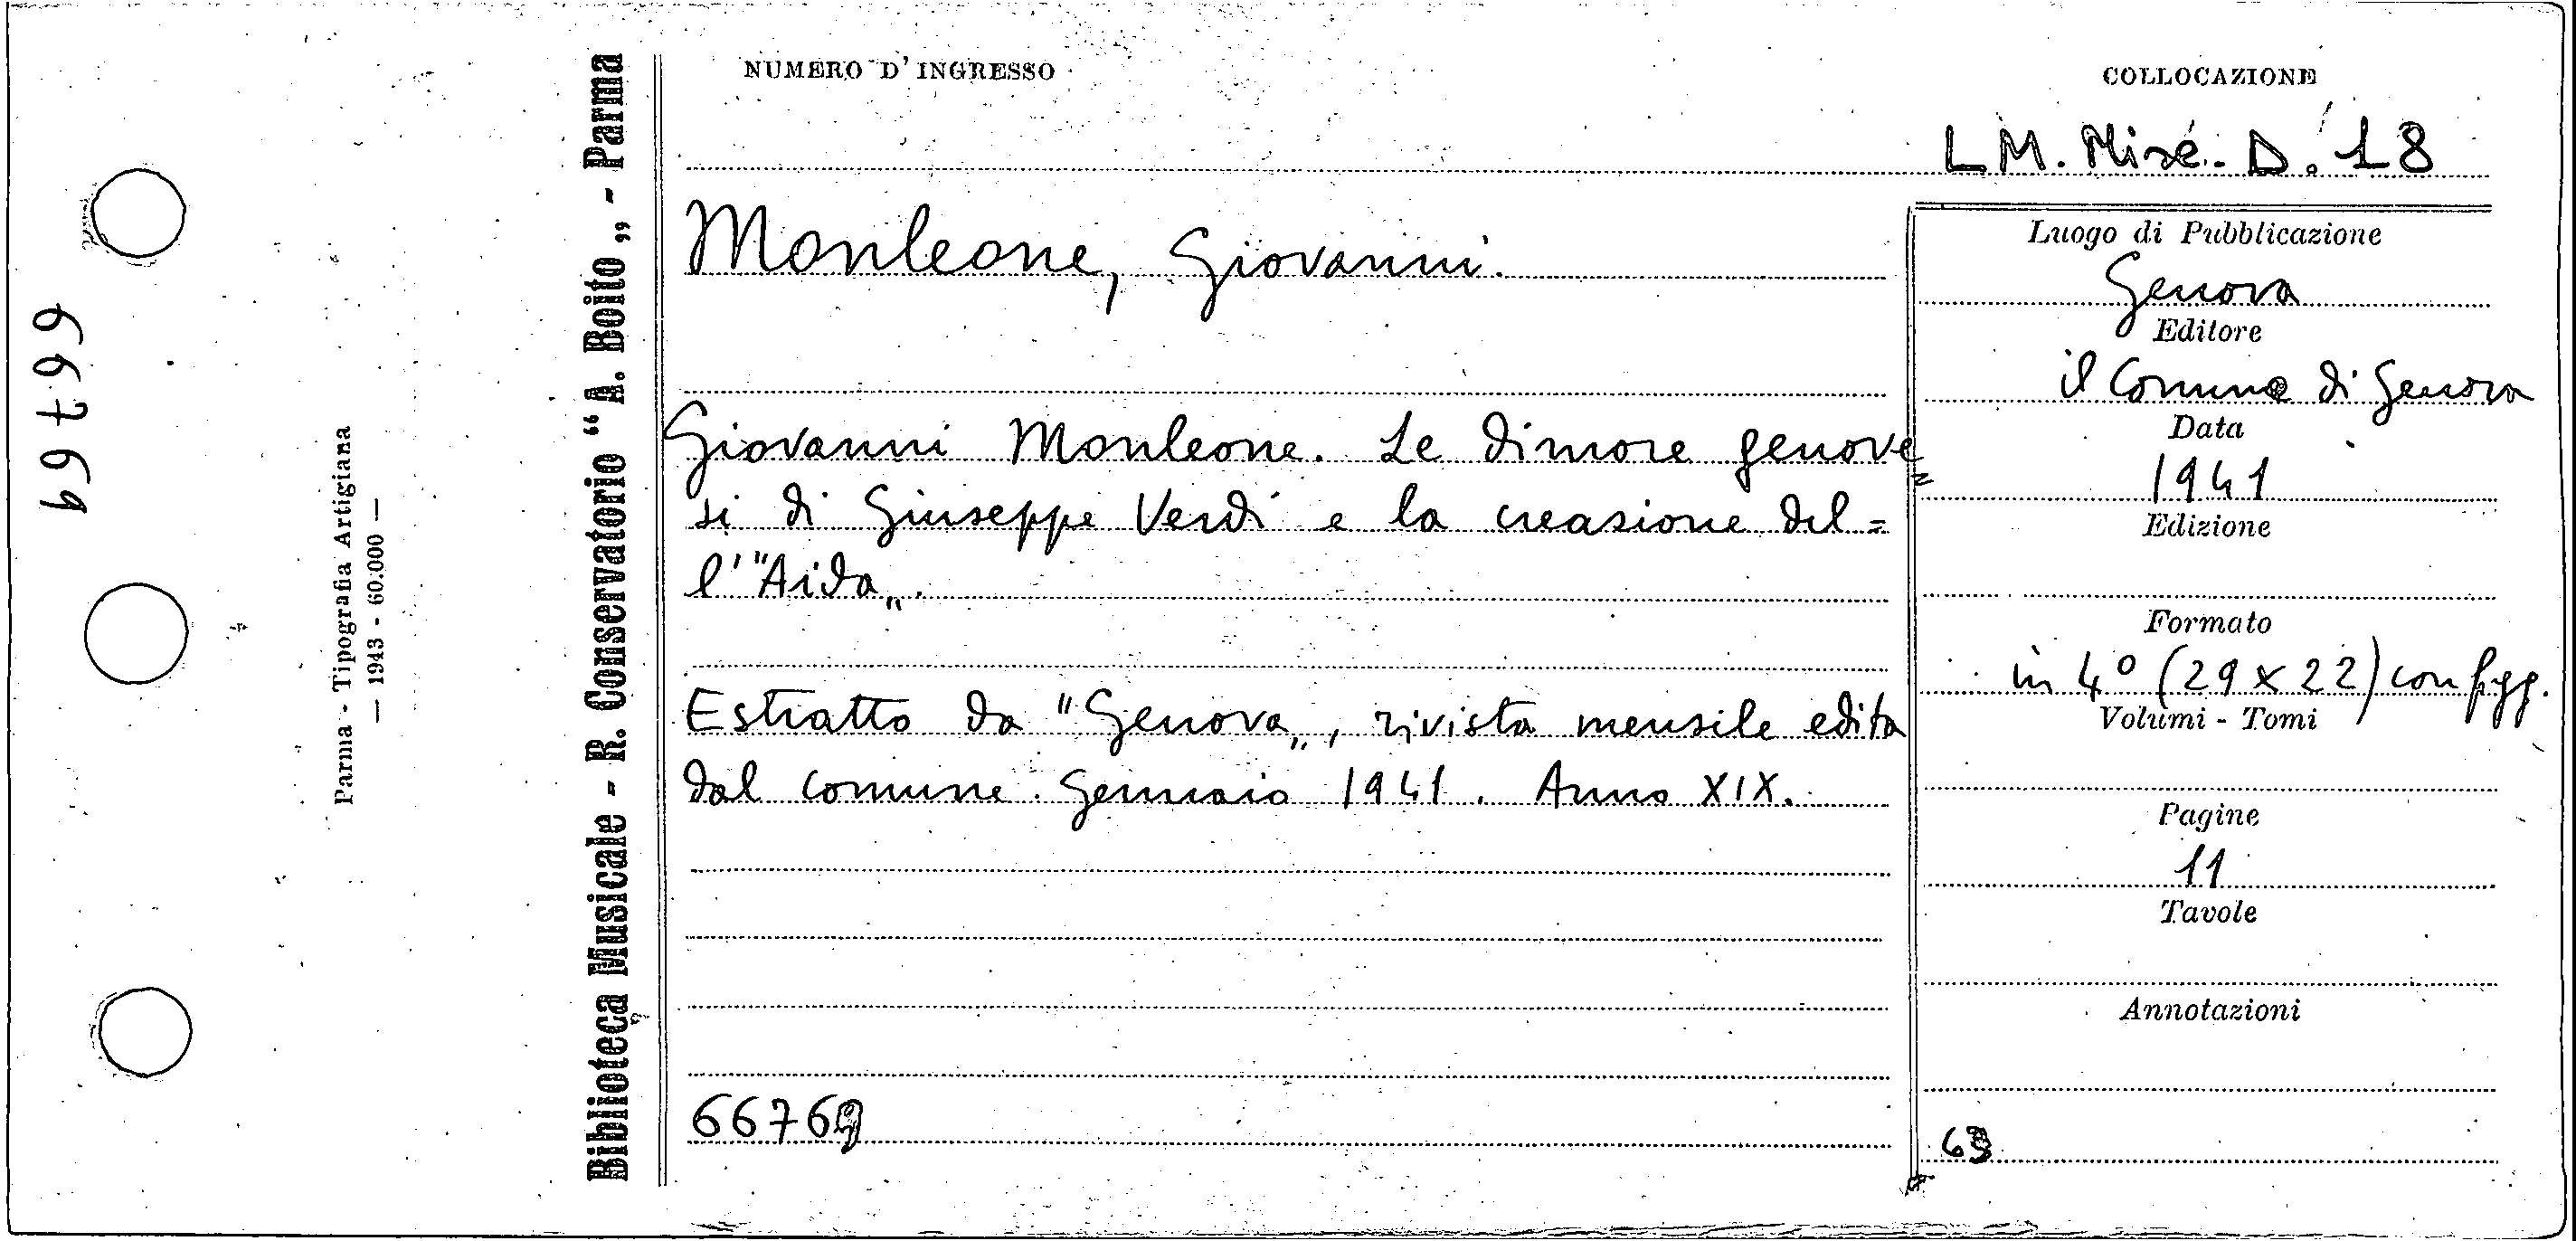 66769
Parma - Tipografia Artigiana
— 1943 - 60.000 —
Biblioteca Musicale - R. Conservatorio “A. Boito„ - Parma
NUMERO D'INGRESSO
COLLOCAZIONE
LM. Misc. D. 18
Monleone, Giovanni.
Giovanni Monleone. Le dimore genove=
si di Giuseppe Verdi e la creazione del=
l'"Aida„.
Estratto da "Genova„, rivista mensile edita
dal comune. Gennaio 1941. Anno XIX.
66769
Luogo di Pubblicazione
Genova
Editore
il Comune di Genova
Data
1941
Edizione
Formato
in 4° (29 x 22) con figg.
Volumi - Tomi
Pagine
11
Tavole
Annotazioni